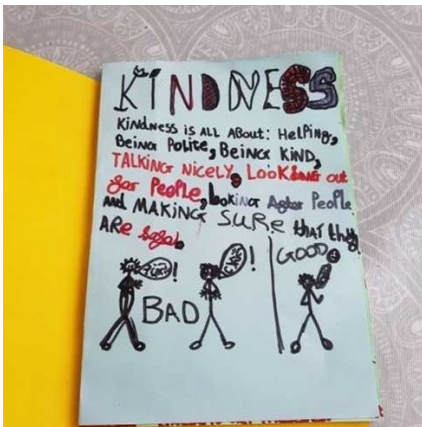 KiNDNESS
KiNDNESS is ALL ABOUT: HELPiNG,
BEiNG POLiTE, BEiNG KiND,
TALKING NiCELY, LOOKING out
for PEOPLE, LOOKiNG After PEOPLE
AND MAKiNG SURE that they
ARe safe.
BAD
GOOD